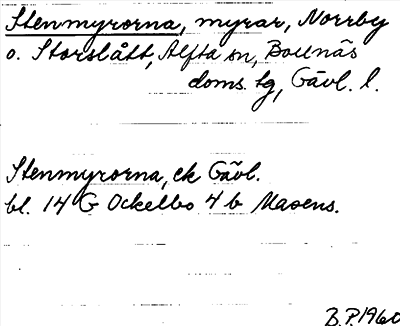 Stenmyrorna, myrar, Norrby
o. Storslått, Alfta sn, Bollnäs
doms. tg, Gävl. l.
Stenmyrorna, ek Gävl.
bl. 14 G Ockelbo 4 b Masens.
B.P. 1960